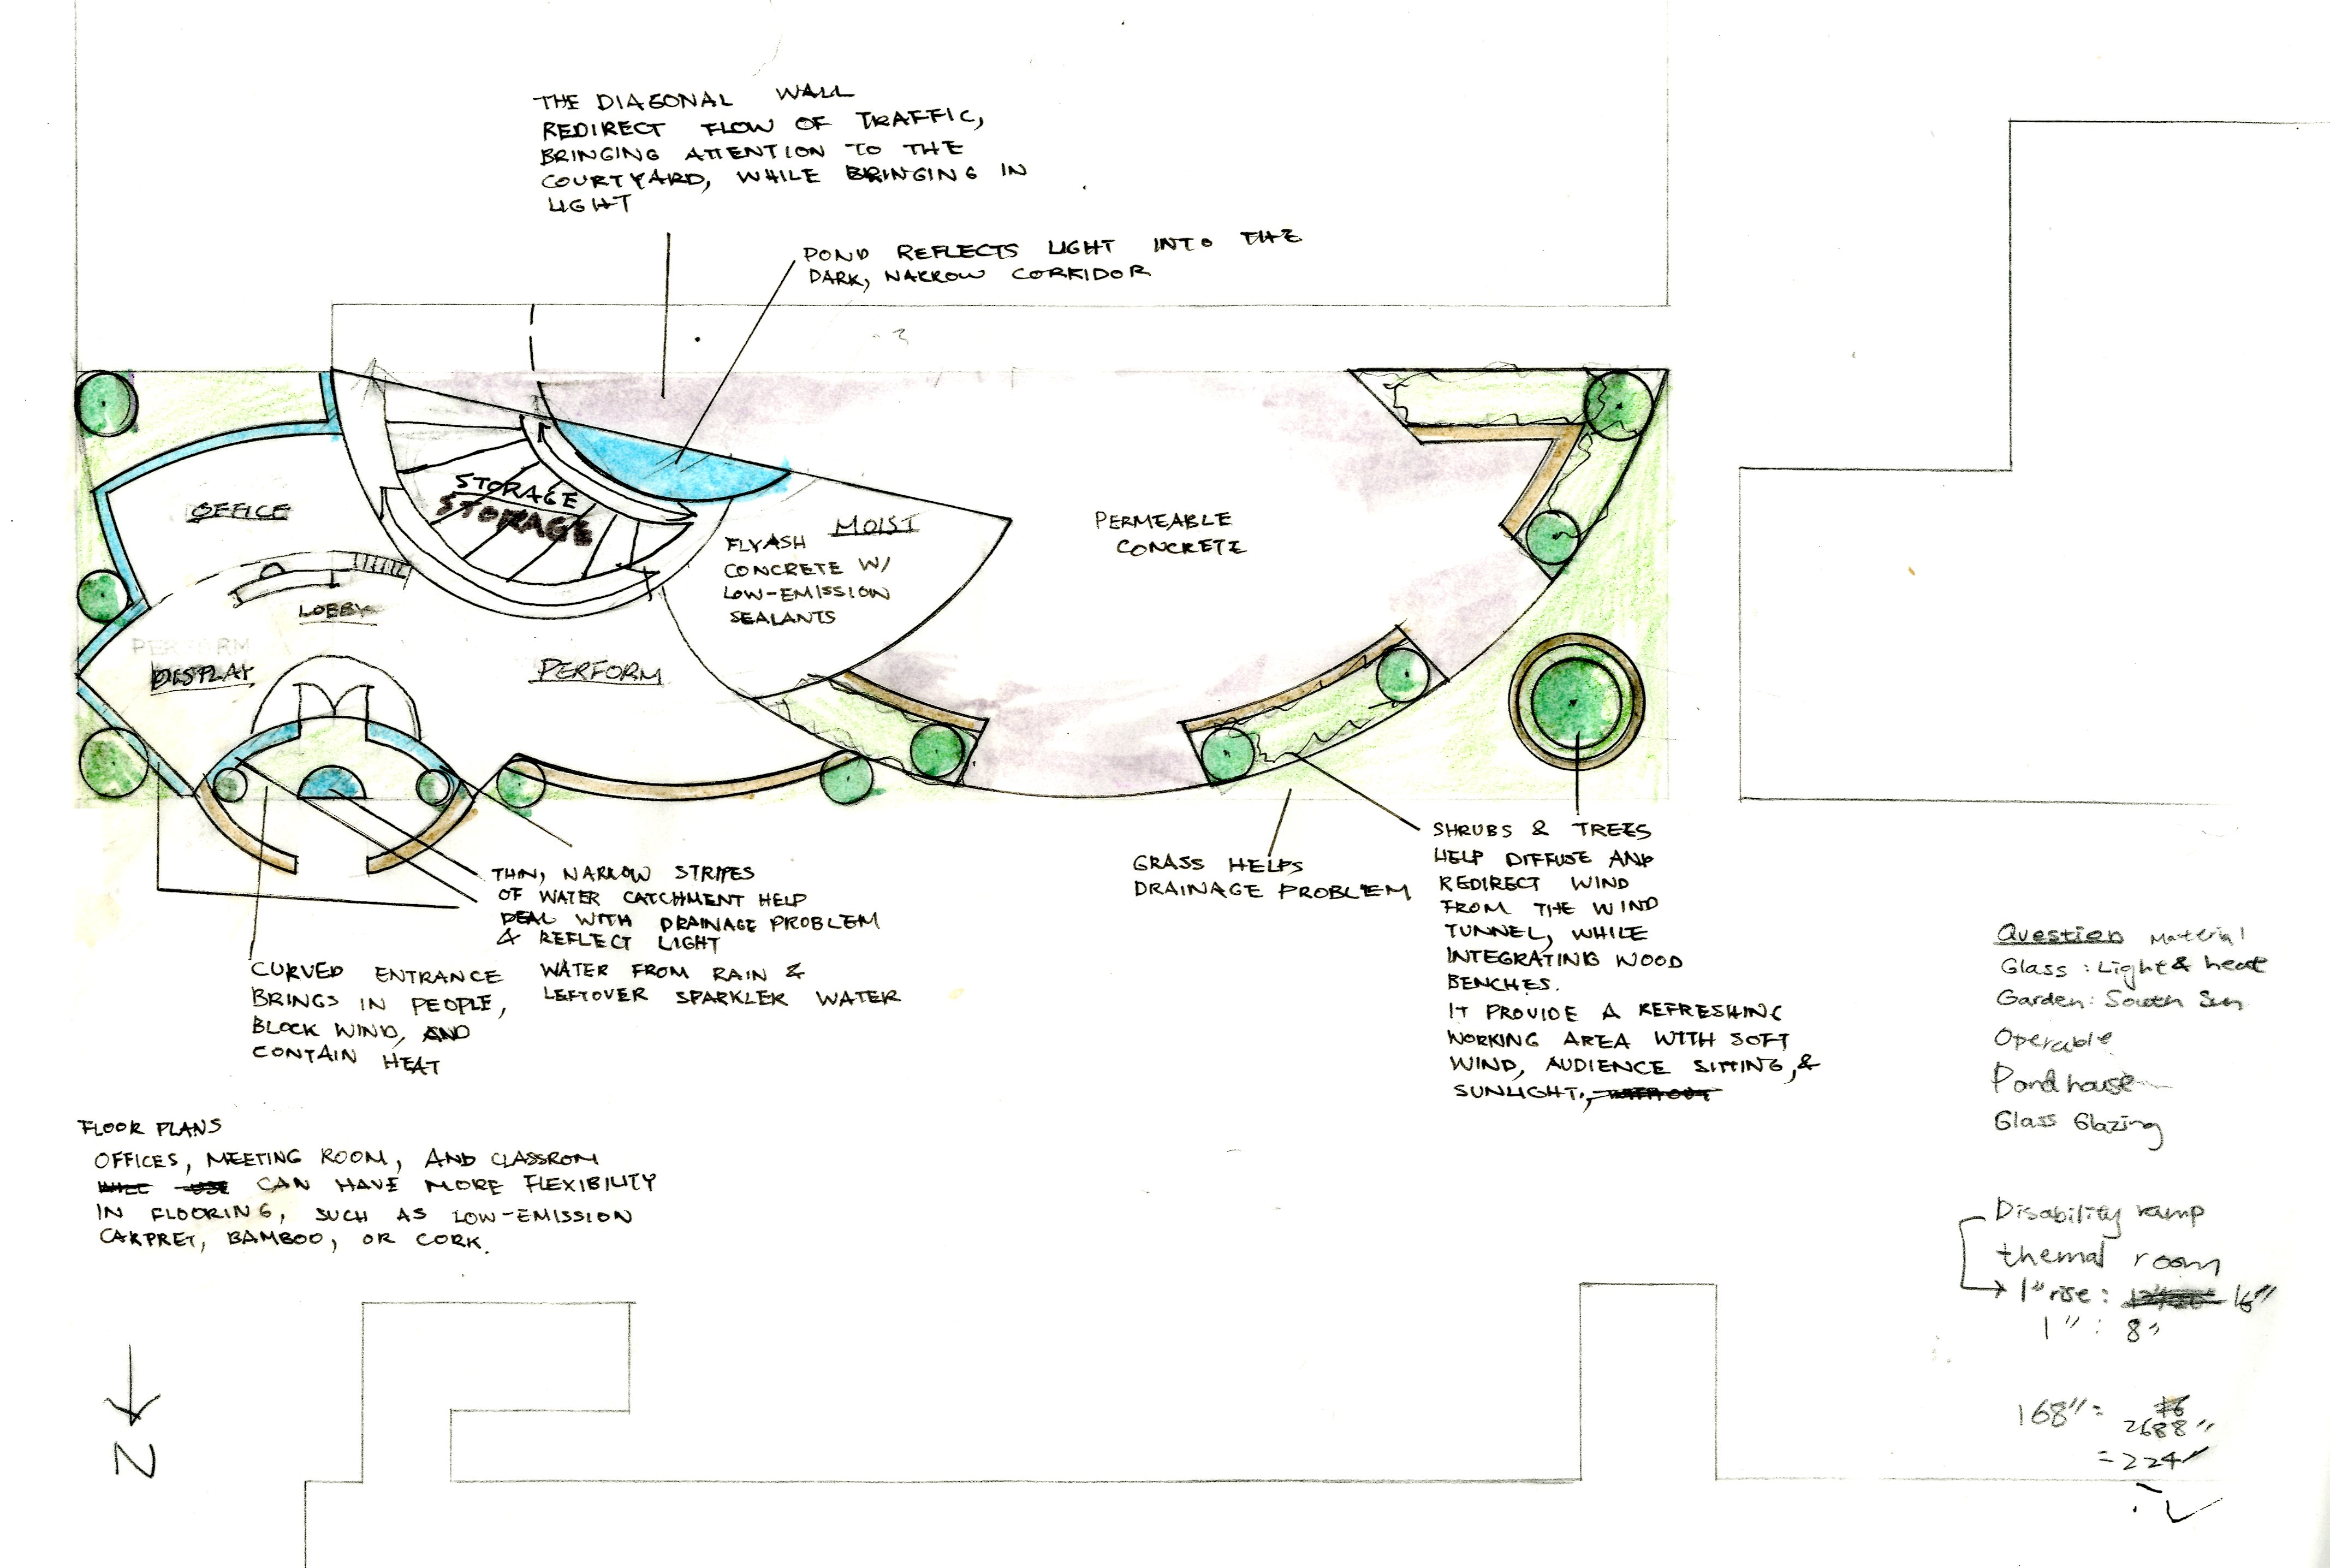 THE DIAGONAL WALL
REDIRECT FLOW OF TRAFFIC,
BRINGING ATTENTION TO THE
COURTYARD, WHILE BRINGING IN
LIGHT
POND REFLECTS LIGHT INTO THE
DARK, NARROW CORRIDOR
OFFICE
STORAGE
STORAGE
MOIST
FLYASH
CONCRETE W/
LOW-EMISSION
SEALANTS
PERMEABLE
CONCRETE
LOBBY
PERFORM
DISPLAY
PERFORM
THIN, NARROW STRIPES
OF WATER CATCHMENT HELP
DEAL WITH DRAINAGE PROBLEM
& REFLECT LIGHT
WATER FROM RAIN &
LEFTOVER SPARKLER WATER
CURVED ENTRANCE
BRINGS IN PEOPLE,
BLOCK WIND, AND
CONTAIN HEAT
GRASS HELPS
DRAINAGE PROBLEM
SHRUBS & TREES
HELP DIFFUSE AND
REDIRECT WIND
FROM THE WIND
TUNNEL, WHILE
INTEGRATING WOOD
BENCHES.
IT PROVIDE A REFRESHING
WORKING AREA WITH SOFT
WIND, AUDIENCE SITTING, &
SUNLIGHT, WITHOUT
FLOOR PLANS
OFFICES, MEETING ROOM, AND CLASSROM
WILL USE CAN HAVE MORE FLEXIBILITY
IN FLOORING, SUCH AS LOW-EMISSION
CARPRET, BAMBOO, OR CORK.
Question Material
Glass: Light & heat
Garden: South Sun
Operable
Pond house
Glass Glazing
Disability ramp
themal room
1" rise: 16"
1" : 8"
168" =
2688"
= 224'
N